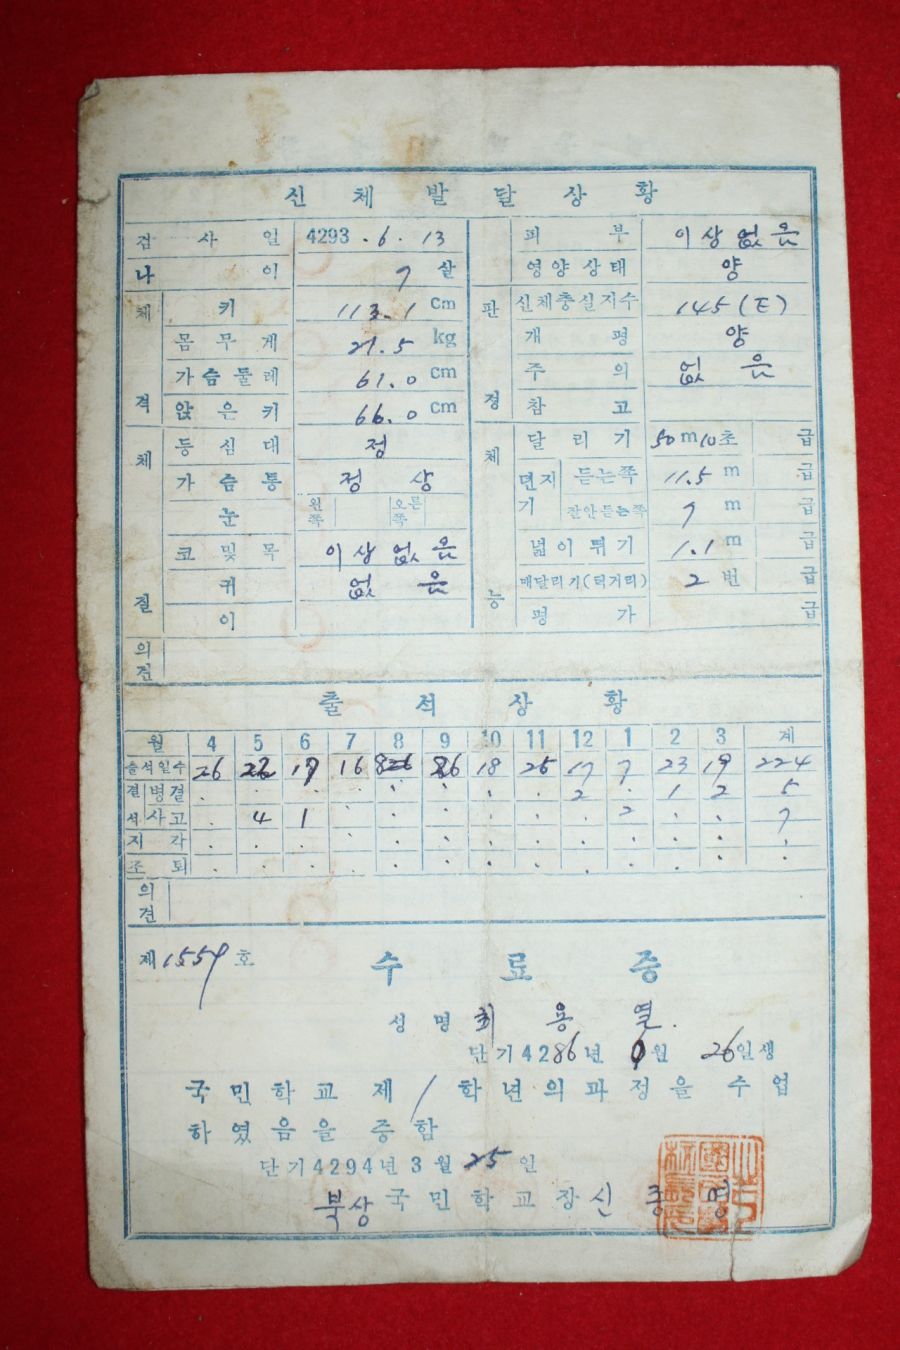 신체발달상황
검사일 4293.6.13 피부 이상없음
나이 7 살 영양상태 양
체격 키 113.1 cm 판정 신체충실지수 145(E)
몸무게 21.5 kg 개평 양
가슴둘레 61.0 cm 주의 없음
앉은키 66.0 cm 참고
체질 등심대 정 체능 달리기 50m 10초 급
가슴통 정상 던지기 듣는쪽 11.5 m 급
눈 왼쪽 오른쪽 잘안듣는쪽 7 m 급
코및목 이상없음 넓이뛰기 1.1 m 급
귀 없음 매달리기(턱거리) 2 번 급
이 평가 급
의견
출석상황
월 4 5 6 7 8 9 10 11 12 1 2 3 계
출석일수 26 22 19 16 26 18 25 17 7 23 19 224
결석 병결 . . . . . . . . 2 . 1 2 5
사고 . 4 1 . . . . . . 2 . . 7
지각 . . . . . . . . . . . . .
조퇴 . . . . . . . . . . . . .
의견
제1559호 수료증
성명 최용열.
단기4286년 9월 26일생
국민학교 제 1 학년의과정을 수업
하였음을 증함
단기4294년 3월 25일
북상국민학교장 신종영